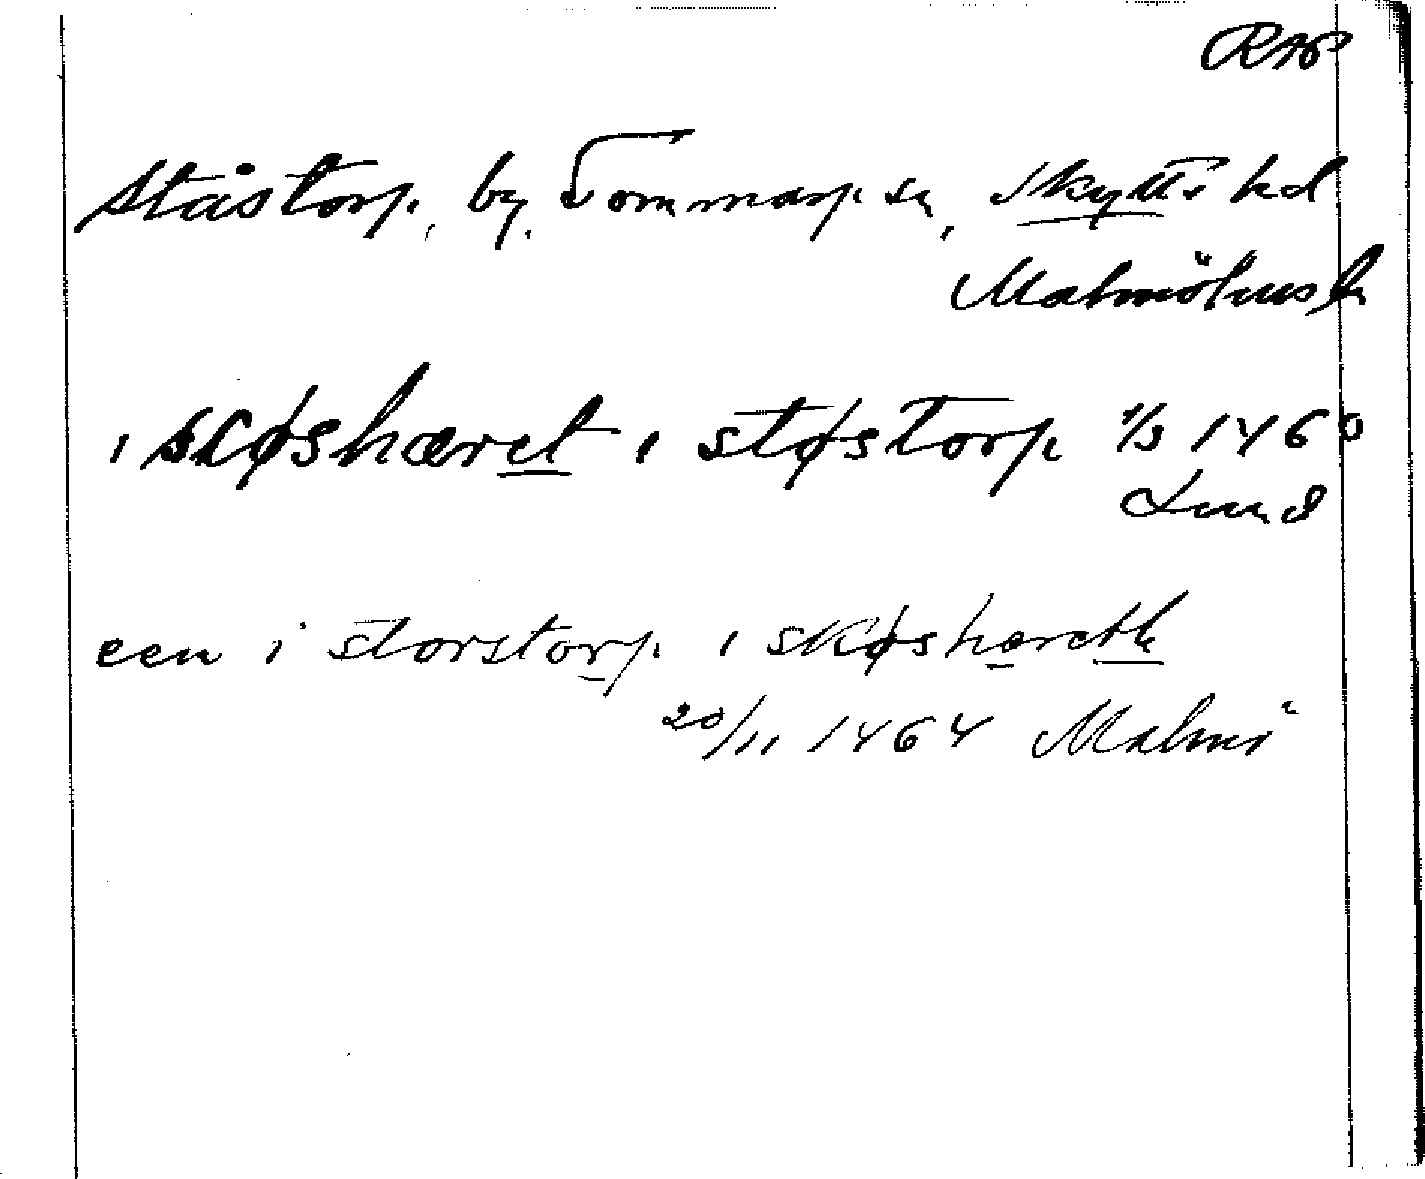 RAP
Ståstorp, by, Tommarp sn, Skytts hd
Malmöhus ln
i skøshæret i støstorp 1/3 1460
Lund
een i storstorp i skøshæreth
20/11 1464 Malmö